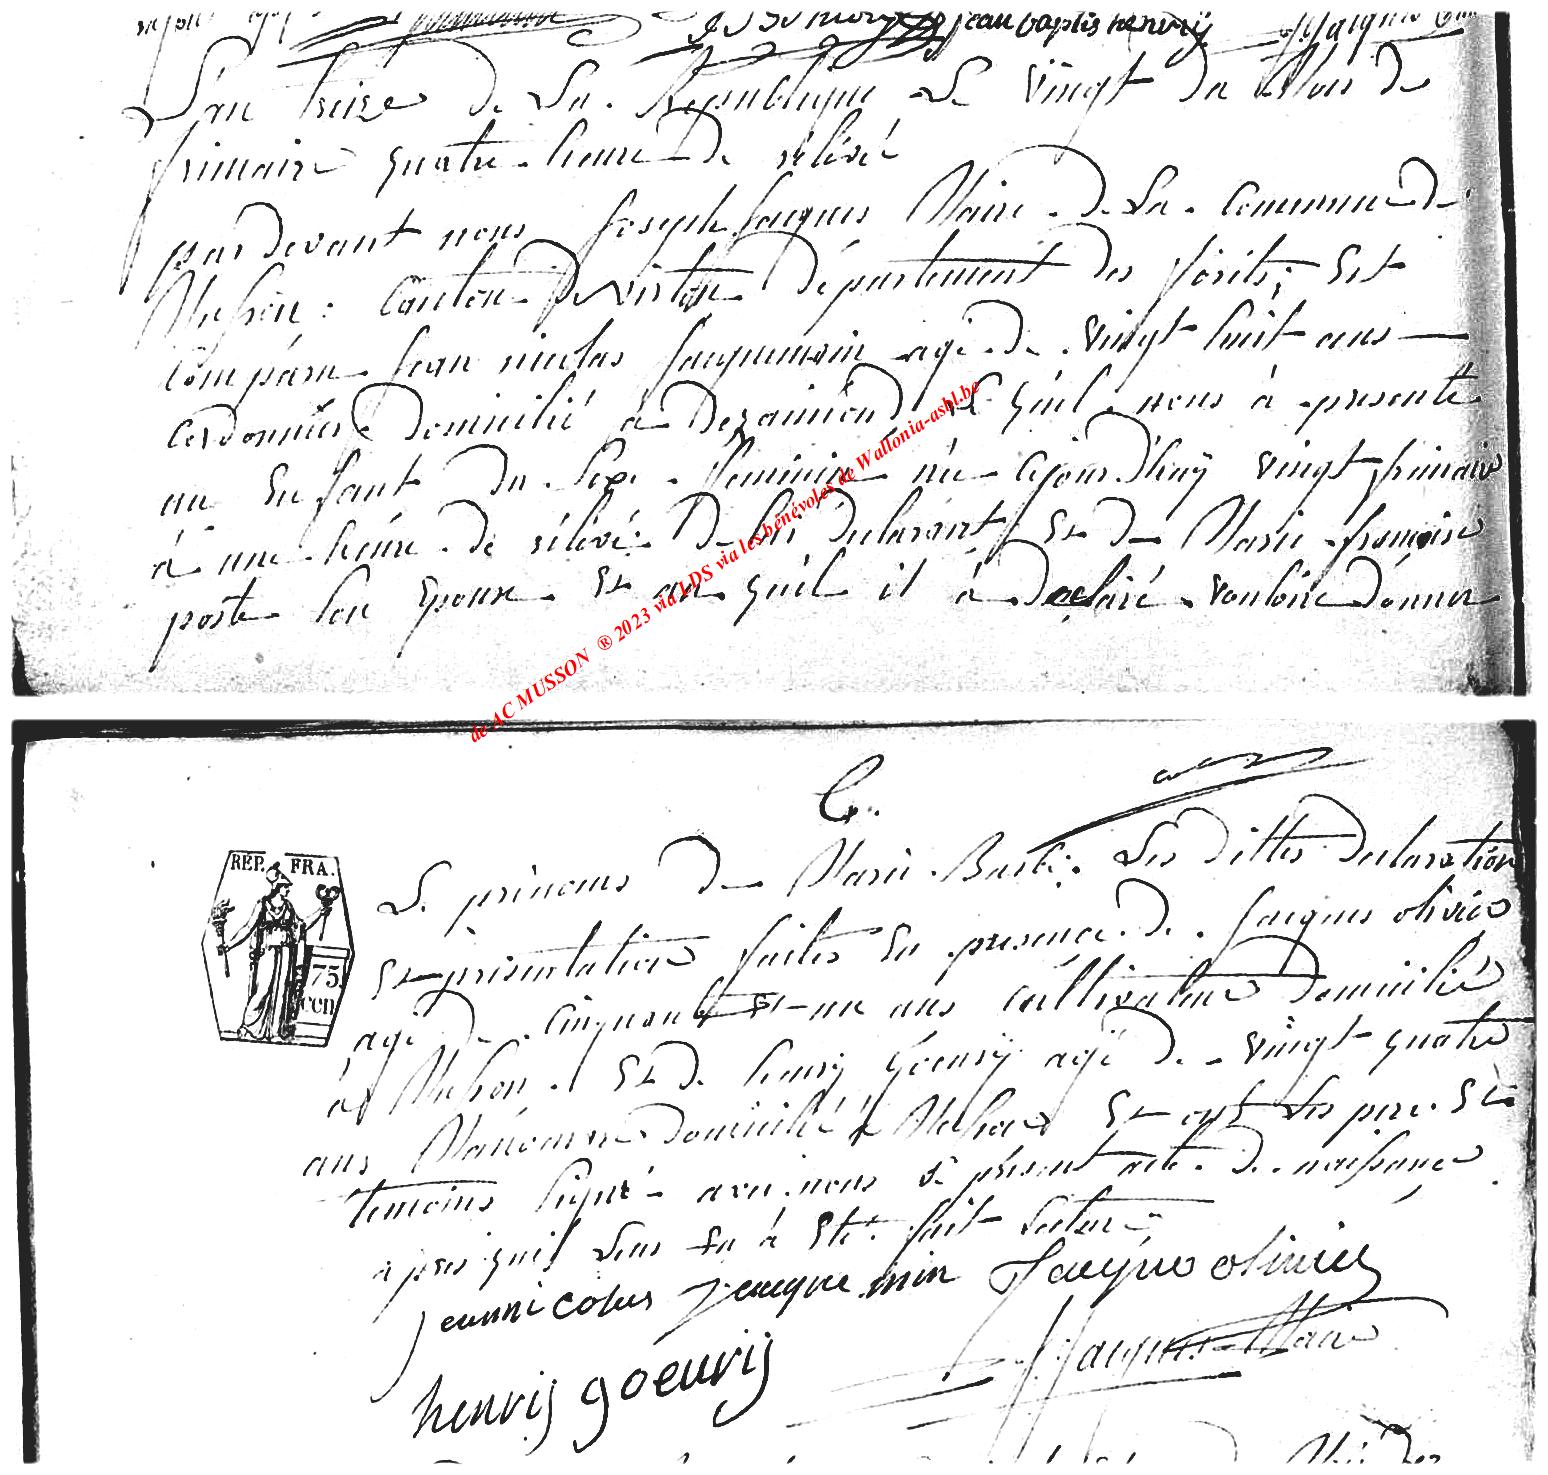 jean baptis henrÿ
L'an treize de La République Le vingt du Mois de
frimaire quatre heure de rélévé
pardevant nous Joseph Jacques Maire de La Commune de
Musson : Canton de virton département des forêts; Est
Comparu Jean nicolas Jacquemain agé de vingt huit ans
cordonnier domicilié à Le quil nous à presenté
un Enfant du Sexe feminin née ajourd'huÿ vingt frimaire
à une heure de rélévé de lui declarant Et de Marie françoise
poste son Epouse Et au quel il à declaré vouloir donner
de AC MUSSON ® 2023 via LDS via les bénévoles de Wallonia-asbl.be
RÉP. FRA.
75.
CEN
Le prénoms de Marie Barbe; Les dittes declaration
Et présentation faites En presence de Jacques olivier
agé de cinquante Et un ans cultivateur domicilié
à Musson. Et de henrÿ Goeurÿ agé de vingt quatre
ans Manoeuvre domicilié à Musson Et ont Les pere Et
temoins signé avec nous le présent acte de naissance
apres quil Leur En à Eté fait Lecture
jeannicolas jacquemin Jacque olivier
henrij goeurij JJacques Maire